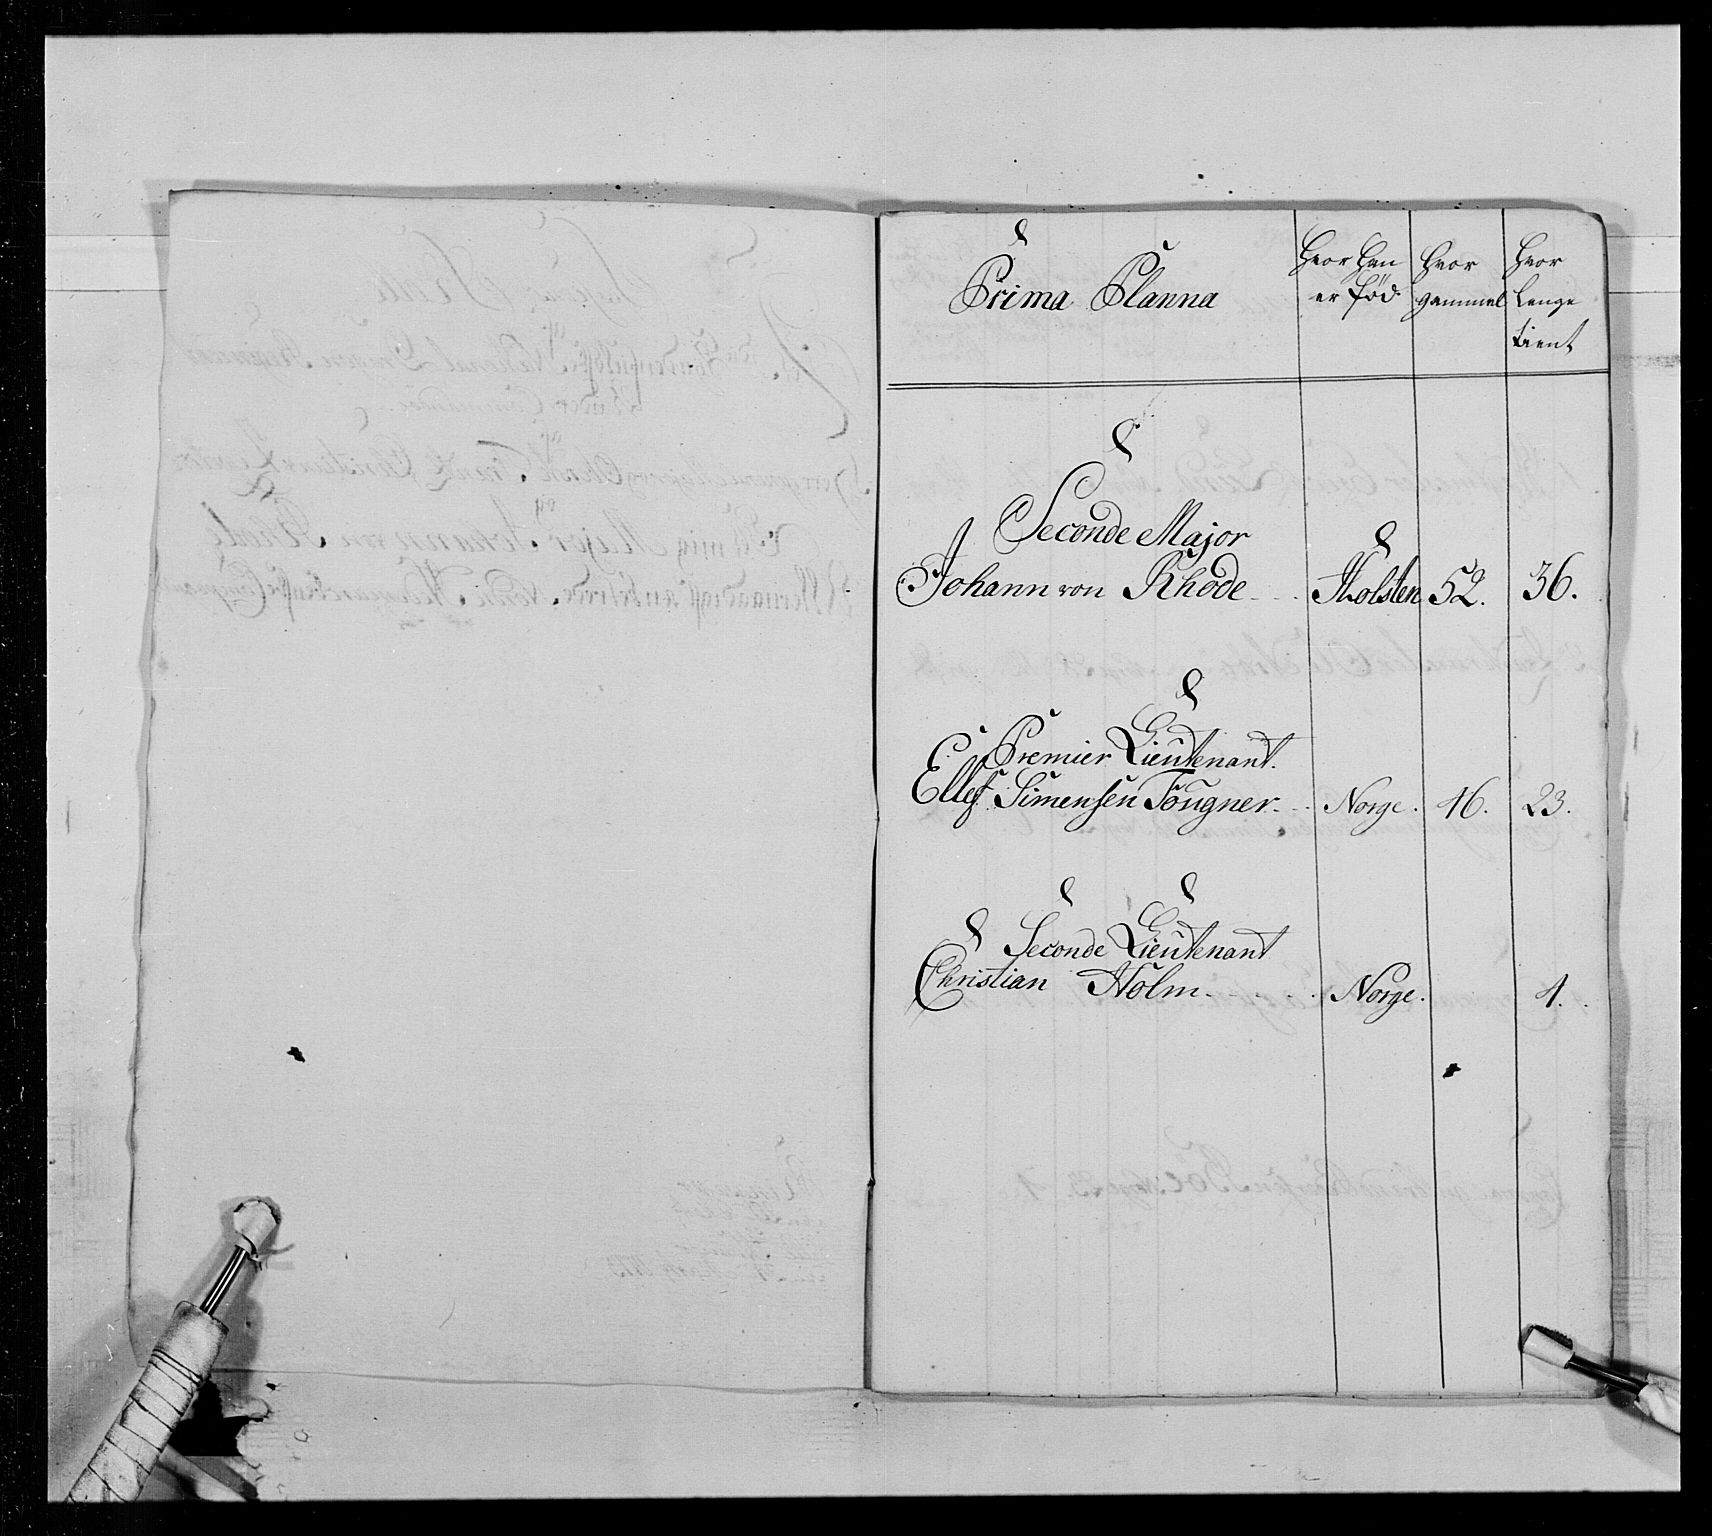 Prima Planna
Hvor han er fød
Hvor gammel
Hvor lenge tient
Seconde Major
Johann von Rhode Holsten 52. 36.
Premier Lieutenant.
Ellef Simensen Tougner Norge. 46. 23.
Seconde Lieutenant
Christian Holm Norge. 1.